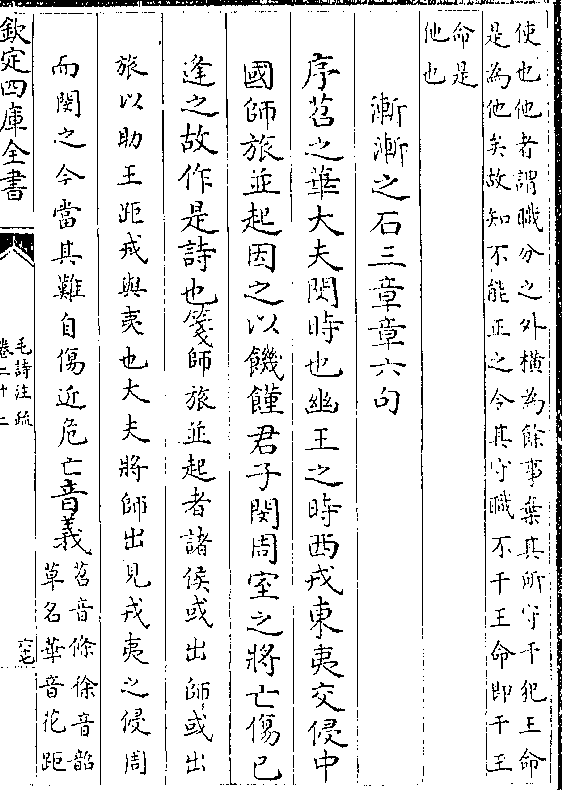 使也他者謂職分之外橫為餘事棄其所守干犯王命
是為他矣故知不能正之令其守職不干王命即干王
命是
他也
漸漸之石三章章六句
序苕之華大夫閔時也幽王之時西戎東夷交侵中
國師旅並起因之以饑饉君子閔周室之將亡傷已
逢之故作是詩也箋師旅並起者諸侯或出師或出
旅以助王距戎與夷也大夫將師出見戎夷之侵周
而閔之今當其難自傷近危亡音義
苕音條徐音韶
草名華音花距
欽定四庫全書
毛詩注疏
卷二十二